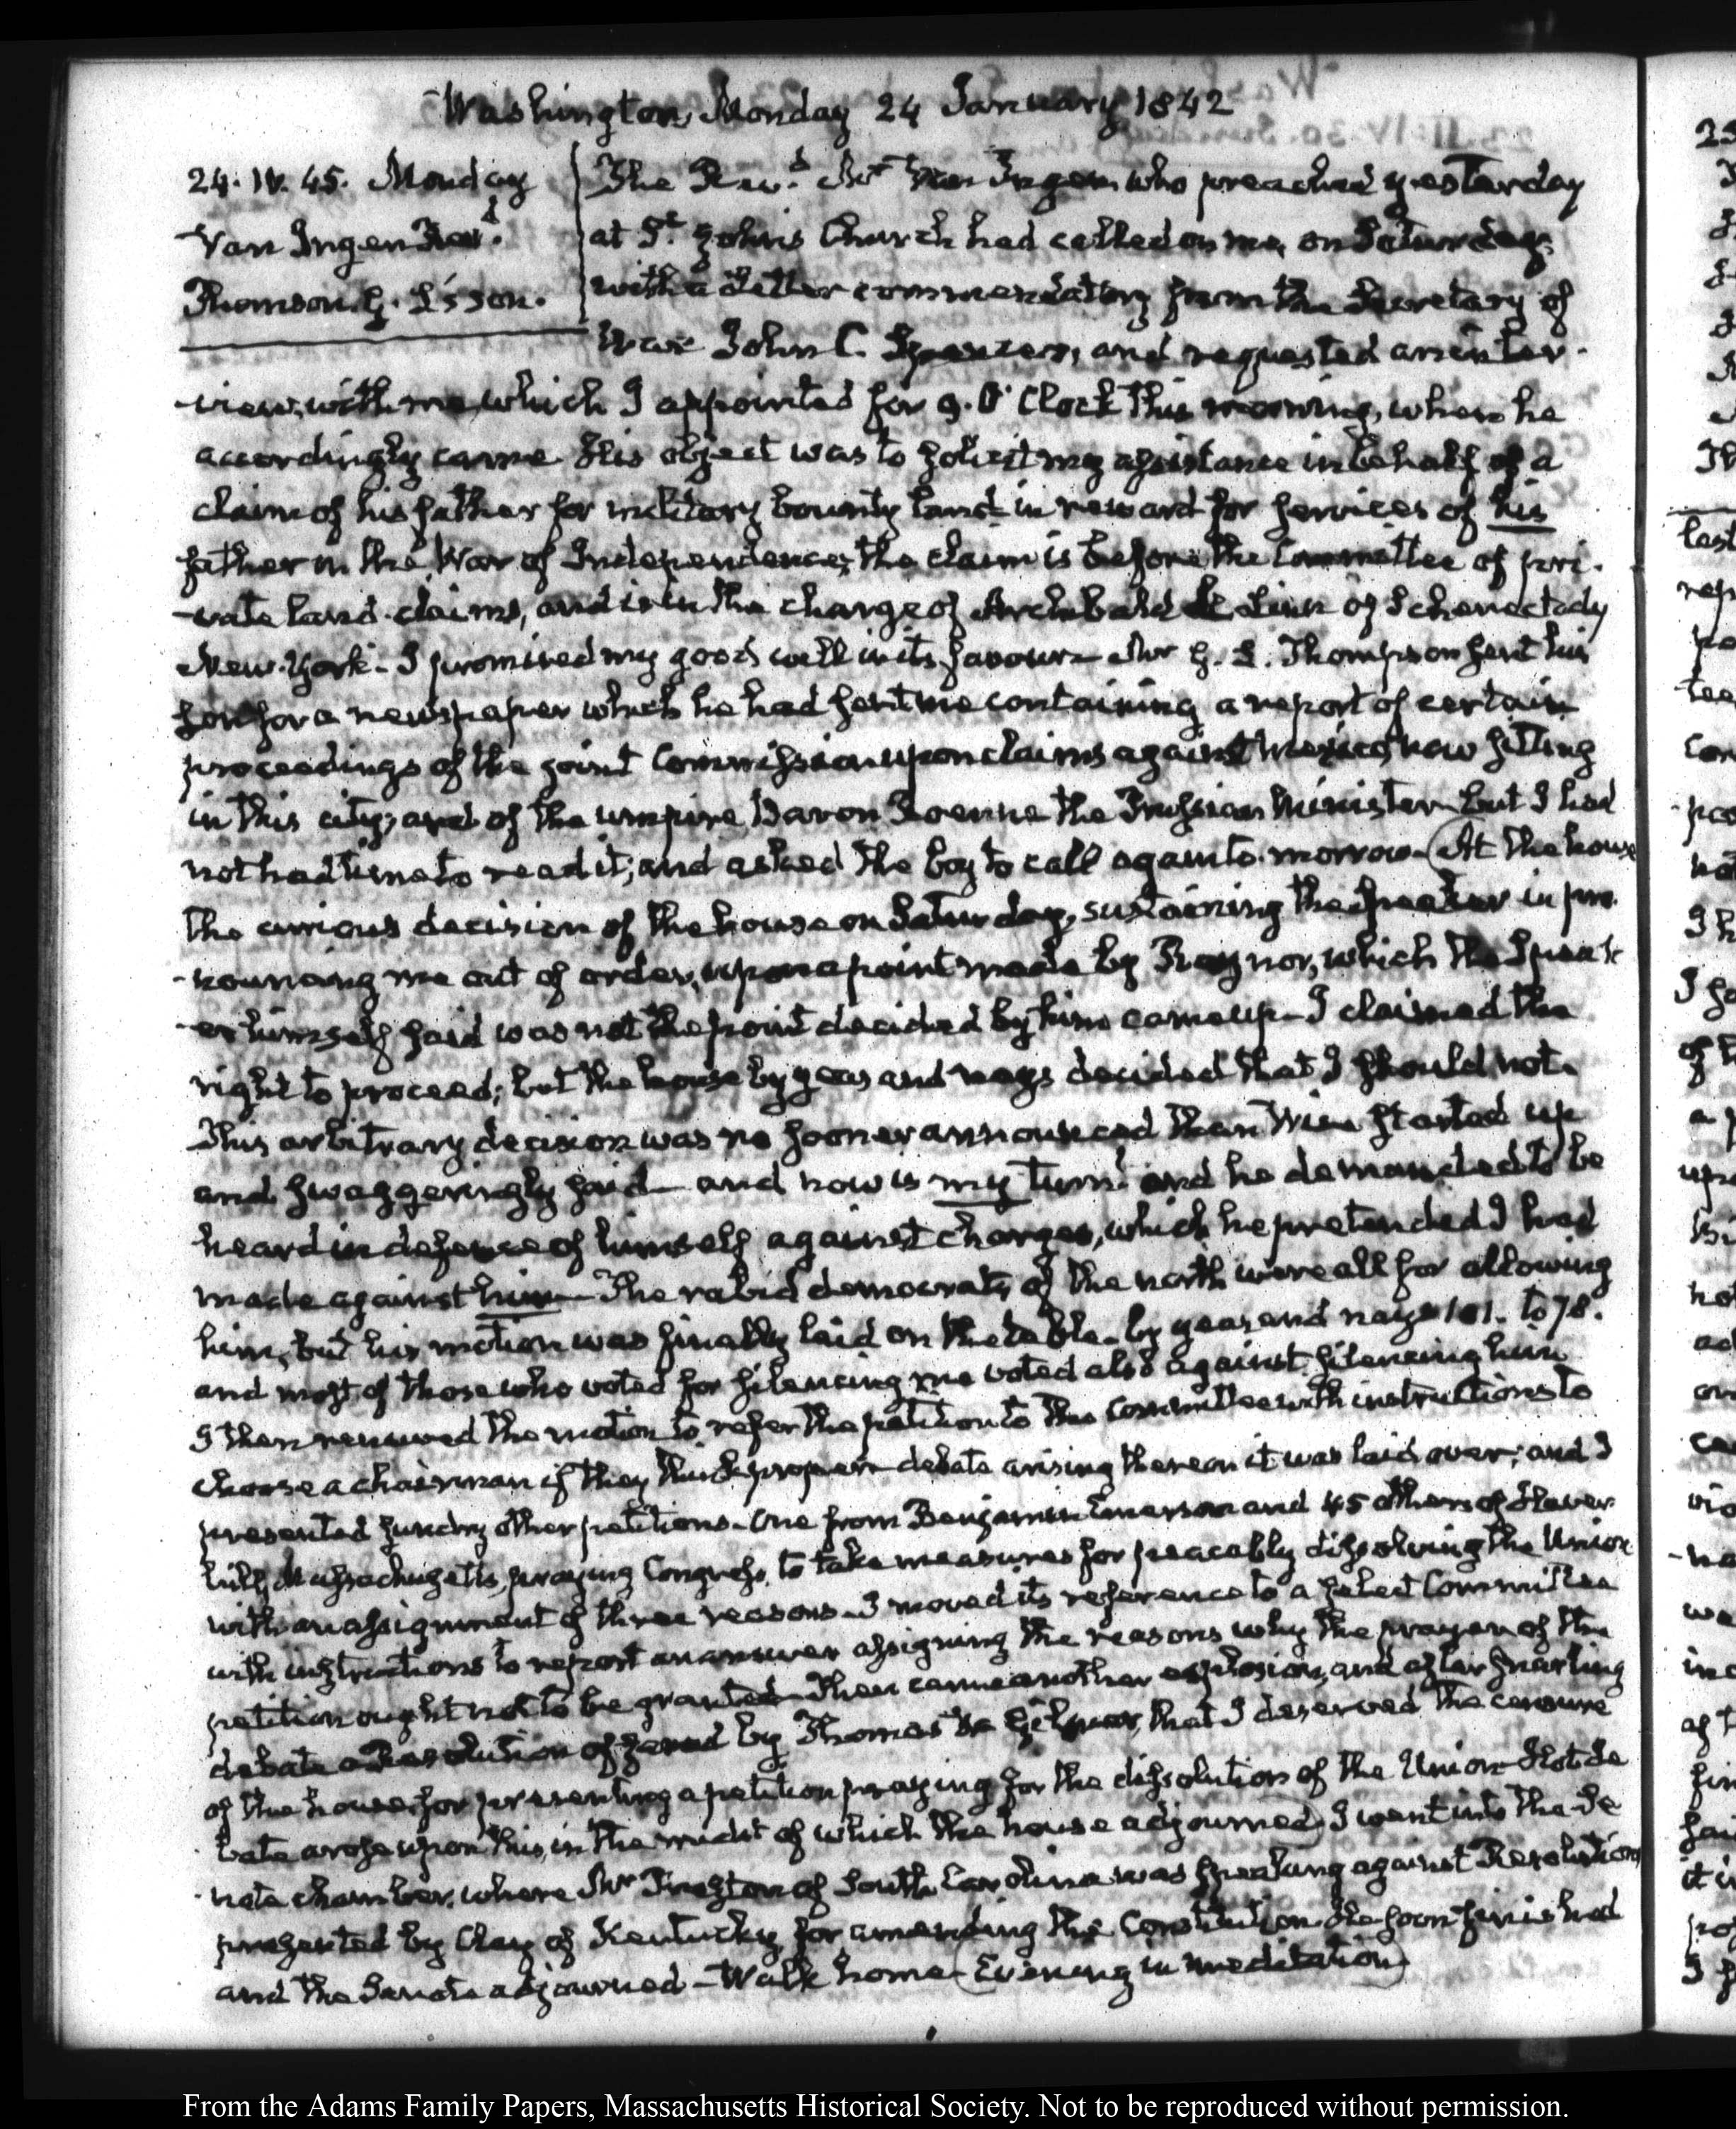 Washington, Monday 24 January 1842
24. IV. 45. Monday
Van Ingen Revd.
Thomson. G. L's son.
The Revd. Mr Van Ingen who preached yesterday
at St. John's Church had called on me, on Saturday,
with a Letter commendatory from the Secretary of
War John C. Spencer, and requested an inter-
-view, with me, which I appointed for 9. O'Clock this morning, when he
accordingly came. His object was to solicit my assistance in behalf of a
claim of his father for military bounty land in reward for services of his
father in the War of Independence; the claim is before the Committee of pri-
-vate land-claims, and is in the charge of Archibald L Linn of Schenectady
New-York. I promised my good will in its favour— Mr G. L. Thompson sent his
son for a newspaper which he had sent me containing a report of certain
proceedings of the joint Commission upon claims against Mexico, now sitting
in this city, and of the umpire Baron Roenne the Prussian Minister— but I had
not had time to read it; and asked the boy to call again to-morrow— (At the house
the curious decision of the house on Saturday, sustaining the Speaker in pro-
-nouncing me out of order, upon a point made by Raynor, which the Speak-
-er himself said was not the point decided by him came up— I claimed the
right to proceed; but the house by yeas and nays decided that I should not.
This arbitrary decision was no sooner announced than Wise started up
and swaggeringly said— and now is my turn and he demanded to be
heard in defence of himself against charges, which he pretended I had
made against him— The rabid democrats of the north were all for allowing
him, but his motion was finally laid on the table— by yeas and nays 101. to 78.
and most of those who voted for silencing me voted also against silencing him
I then renewed the motion to refer the petition to the Committee with instructions to
choose a chairman if they think proper— debate arising thereon it was laid over; and I
presented sundry other petitions— One from Benjamin Emerson and 45 others of Haver-
hill, Massachusetts, praying Congress, to take measures for peaceably dissolving the Union
with an assignment of three reasons— I moved its reference to a select Committee
with instructions to report an answer assigning the reasons why the prayer of the
petition ought not to be granted— Then came another explosion, and after snarling
debate a Resolution offered by Thomas W Gilmer, that I deserved the censure
of the house for presenting a petition praying for the dissolution of the Union— Hot de-
-bate arose upon this, in the midst of which the house adjourned) I went into the Se-
-nate chamber, where Mr Preston of South Carolina was speaking against Resolutions
presented by Clay of Kentucky for amending the Constitution. He soon finished
and the Senate adjourned— Walk home— (Evening in meditation)
From the Adams Family Papers, Massachusetts Historical Society. Not to be reproduced without permission.